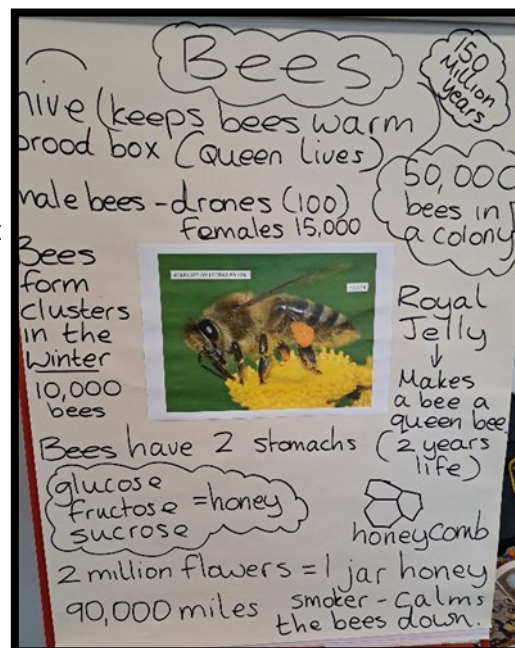 Bees
150
Million
years
hive (keeps bees warm
brood box (Queen lives)
male bees - drones (100)
females 15,000
50,000
bees in
a colony
Bees
form
clusters
in the
winter
10,000
bees
Royal
Jelly
↓
Makes
a bee a
queen bee
(2 years
life)
Bees have 2 stomachs
glucose
fructose = honey
sucrose
honeycomb
2 million flowers = 1 jar honey
90,000 miles
smoker - calms
the bees down.